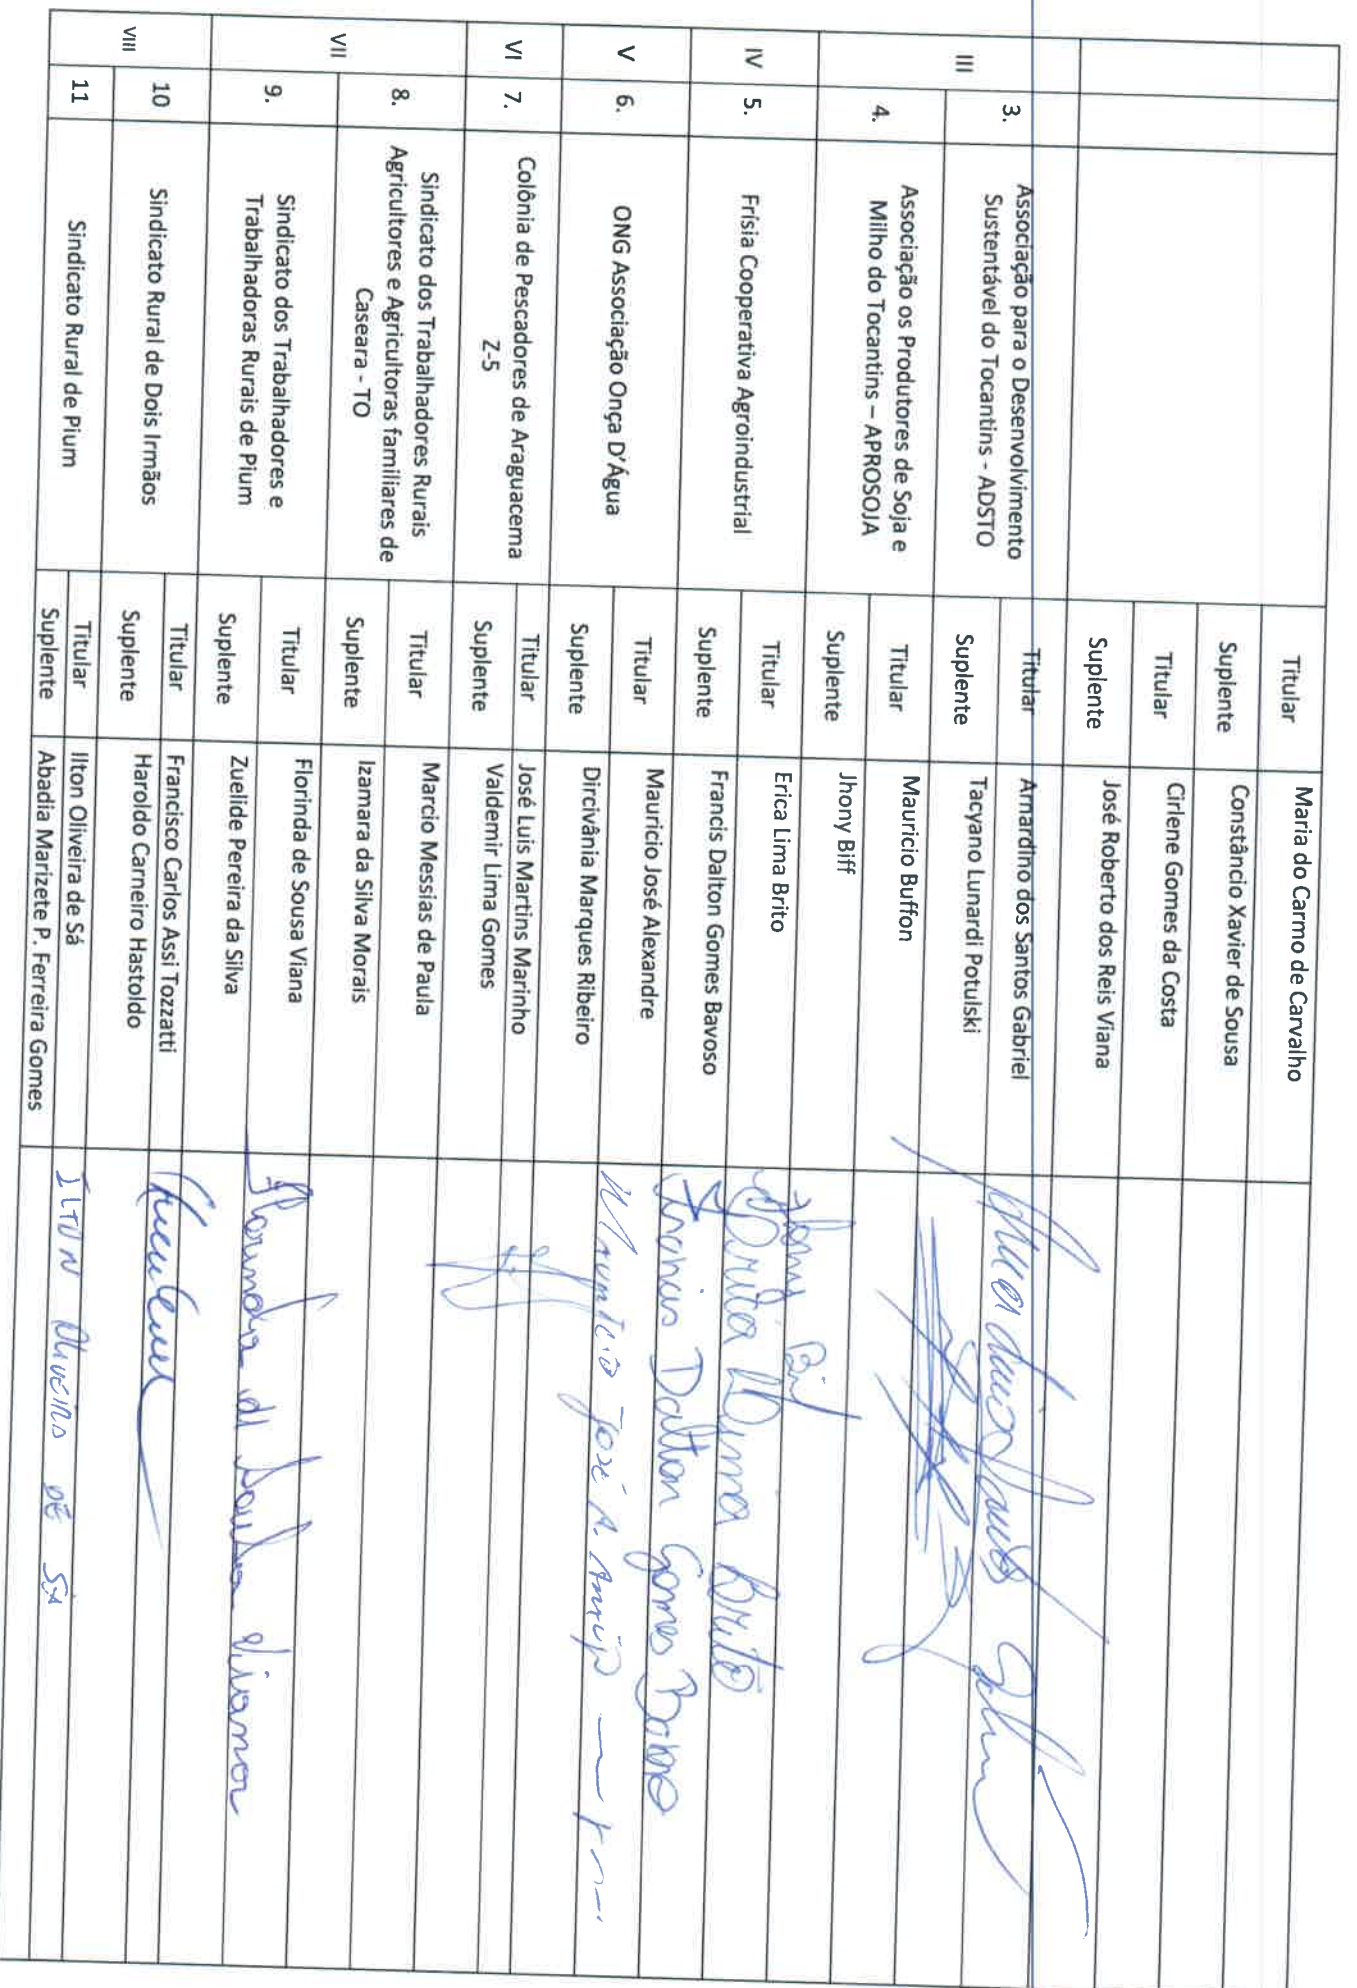 Titular Maria do Carmo de Carvalho
Suplente Constâncio Xavier de Sousa
Titular Cirlene Gomes da Costa
Suplente José Roberto dos Reis Viana
III 3. Associação para o Desenvolvimento
Sustentável do Tocantins - ADSTO
Titular Arnardino dos Santos Gabriel
Suplente Tacyano Lunardi Potulski
4. Associação os Produtores de Soja e
Milho do Tocantins – APROSOJA
Titular Mauricio Buffon
Suplente Jhony Biff Jhony
IV 5. Frísia Cooperativa Agroindustrial
Titular Erica Lima Brito Erica Lima Brito
Suplente Francis Dalton Gomes Bavoso Francis Dalton Gomes
V 6. ONG Associação Onça D'Água
Titular Mauricio José Alexandre Mauricio José A.
Suplente Dircivânia Marques Ribeiro
VI 7. Colônia de Pescadores de Araguacema
Z-5
Titular José Luis Martins Marinho
Suplente Valdemir Lima Gomes
VII 8. Sindicato dos Trabalhadores Rurais
Agricultores e Agricultoras familiares de
Caseara - TO
Titular Marcio Messias de Paula
Suplente Izamara da Silva Morais
9. Sindicato dos Trabalhadores e
Trabalhadoras Rurais de Pium
Titular Florinda de Sousa Viana Florinda de Sousa Viana
Suplente Zuelide Pereira da Silva
VIII 10 Sindicato Rural de Dois Irmãos
Titular Francisco Carlos Assi Tozzatti
Suplente Haroldo Carneiro Hastoldo
11 Sindicato Rural de Pium
Titular Ilton Oliveira de Sá ILTON OLIVEIRA DE SÁ
Suplente Abadia Marizete P. Ferreira Gomes